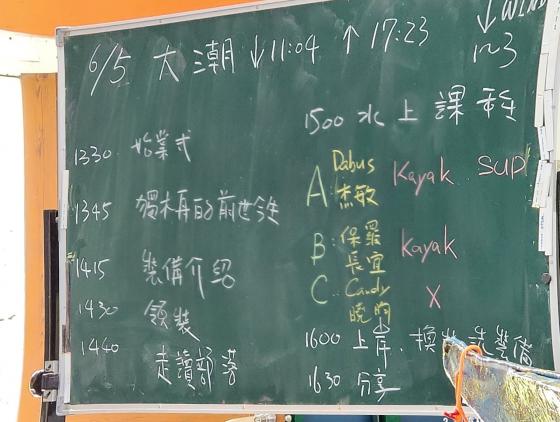 6/5 大潮 ↓11:04 ↑17:23
↓WIND
1~3
1330 始業式
1345 獨木舟的前世今生
1415 裝備介紹
1430 領裝
1440
走讀部落
1500 水上課程
A Dabus 杰敏 Kayak SUP
B: 保羅 長宜 Kayak
C: Candy 曉昀 X
1600 上岸、換裝 洗裝備
1630 分享